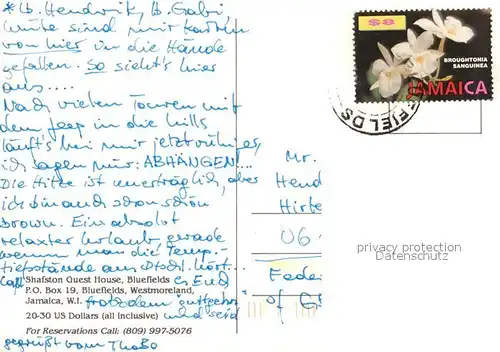 *Lb. Hendrik, lb. Gabi
heute sind mir Karten
von hier in die Hände
gefallen. So sieht's hier
aus....
Nach vielen Touren mit
dem Jeep in die hills
läuft's bei mir jetzt ruhiger,
ich sagen nur: ABHÄNGEN!...
Die Hitze ist unerträglich, aber
ich bin auch schon schön
brown. Ein absolut
relaxter Urlaub gerade
wenn man die Temp.-
tiefstände aus Dtschl. hört...
Call Es End
trotzdem gutgehen
und seid
gegrüßt vom ThoBo
Shafston Guest House, Bluefields
P.O. Box 19, Bluefields, Westmoreland,
Jamaica, W.I.
20-30 US Dollars (all inclusive)
For Reservations Call: (809) 997-5076
$8
BROUGHTONIA
SANGUINEA
JAMAICA
FIELDS
Mr.
Hend
Hirte
U6
Feder
of G
privacy protection
Datenschutz